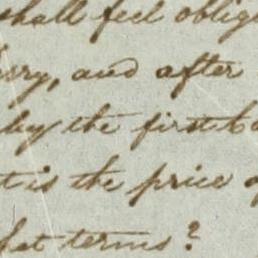 shall feel oblig
rry, and after
by the first bo
t is the price o
hat terms?